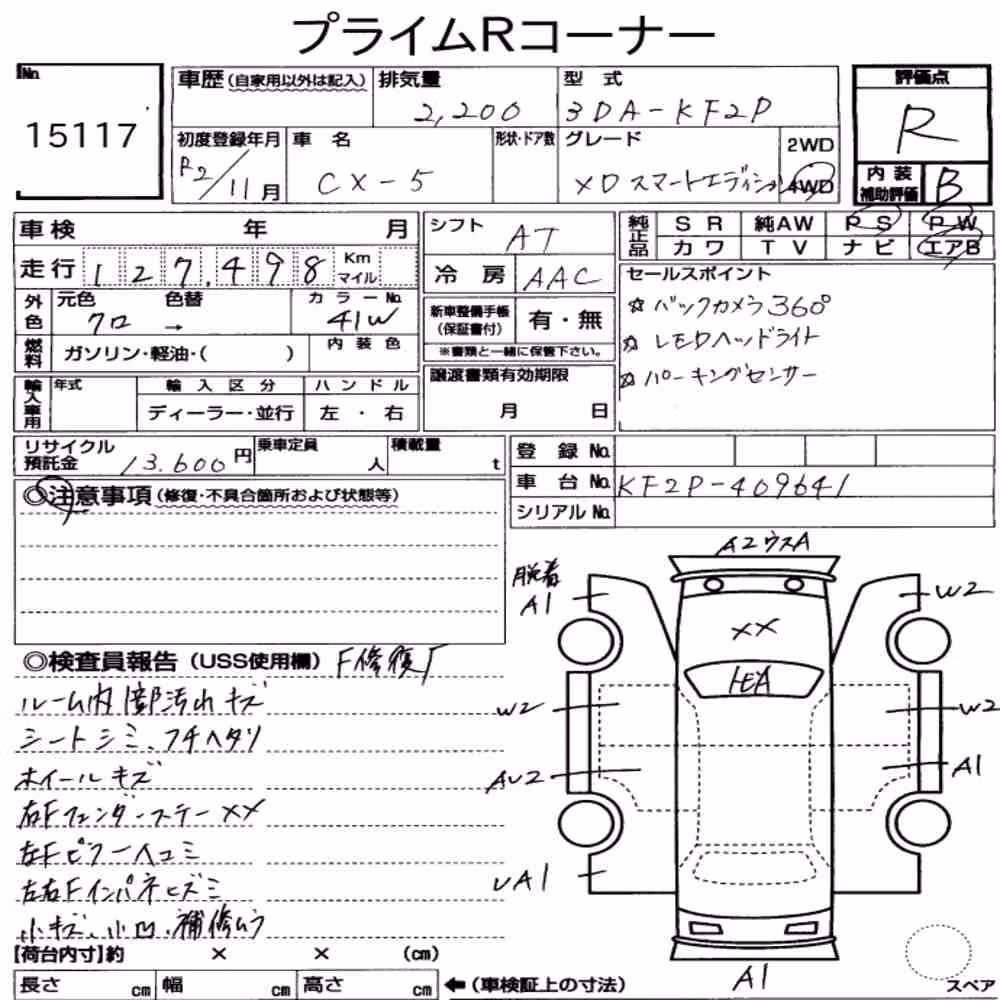 プライムRコーナー
No. 15117
車歴(自家用以外は記入) 排気量 2,200 型式 3DA-KF2P
評価点 R
初度登録年月 R2/11月 車名 CX-5 形状・ドア数 グレード XDスマートエディション 2WD 4WD
内装補助評価 B
車検 年 月
シフト AT
純正品 SR 純AW PS PW
カワ TV ナビ エアB
走行 127,498 Km マイル
冷房 AAC
セールスポイント
☆バックカメラ360°
☆LEDヘッドライト
☆パーキングセンサー
外色 元色 クロ → 色替 カラーNo. 41W
新車整備手帳(保証書付) 有・無
※書類と一緒に保管下さい。
燃料 ガソリン・軽油・( ) 内装色
輸入車用 年式 輸入区分 ハンドル
ディーラー・並行 左・右
譲渡書類有効期限
月 日
リサイクル預託金 13,600円 乗車定員 人 積載量 t
登録No.
車台No. KF2P-409641
シリアルNo.
◎注意事項(修復・不具合箇所および状態等)
◎検査員報告(USS使用欄) F修復
ルーム内部汚れキズ
シートシミ、フチヘタリ
ホイールキズ
右Fフェンダーステー××
左Fピラーヘコミ
左右Fインパネヒズミ
小キズ、小凹、補修ムラ
A2ウスA
脱着
A1
W2
××
W2
W2
AU2
A1
UA1
A1
スペア
【荷台内寸】約 × × (cm)
長さ cm 幅 cm 高さ cm ←(車検証上の寸法)